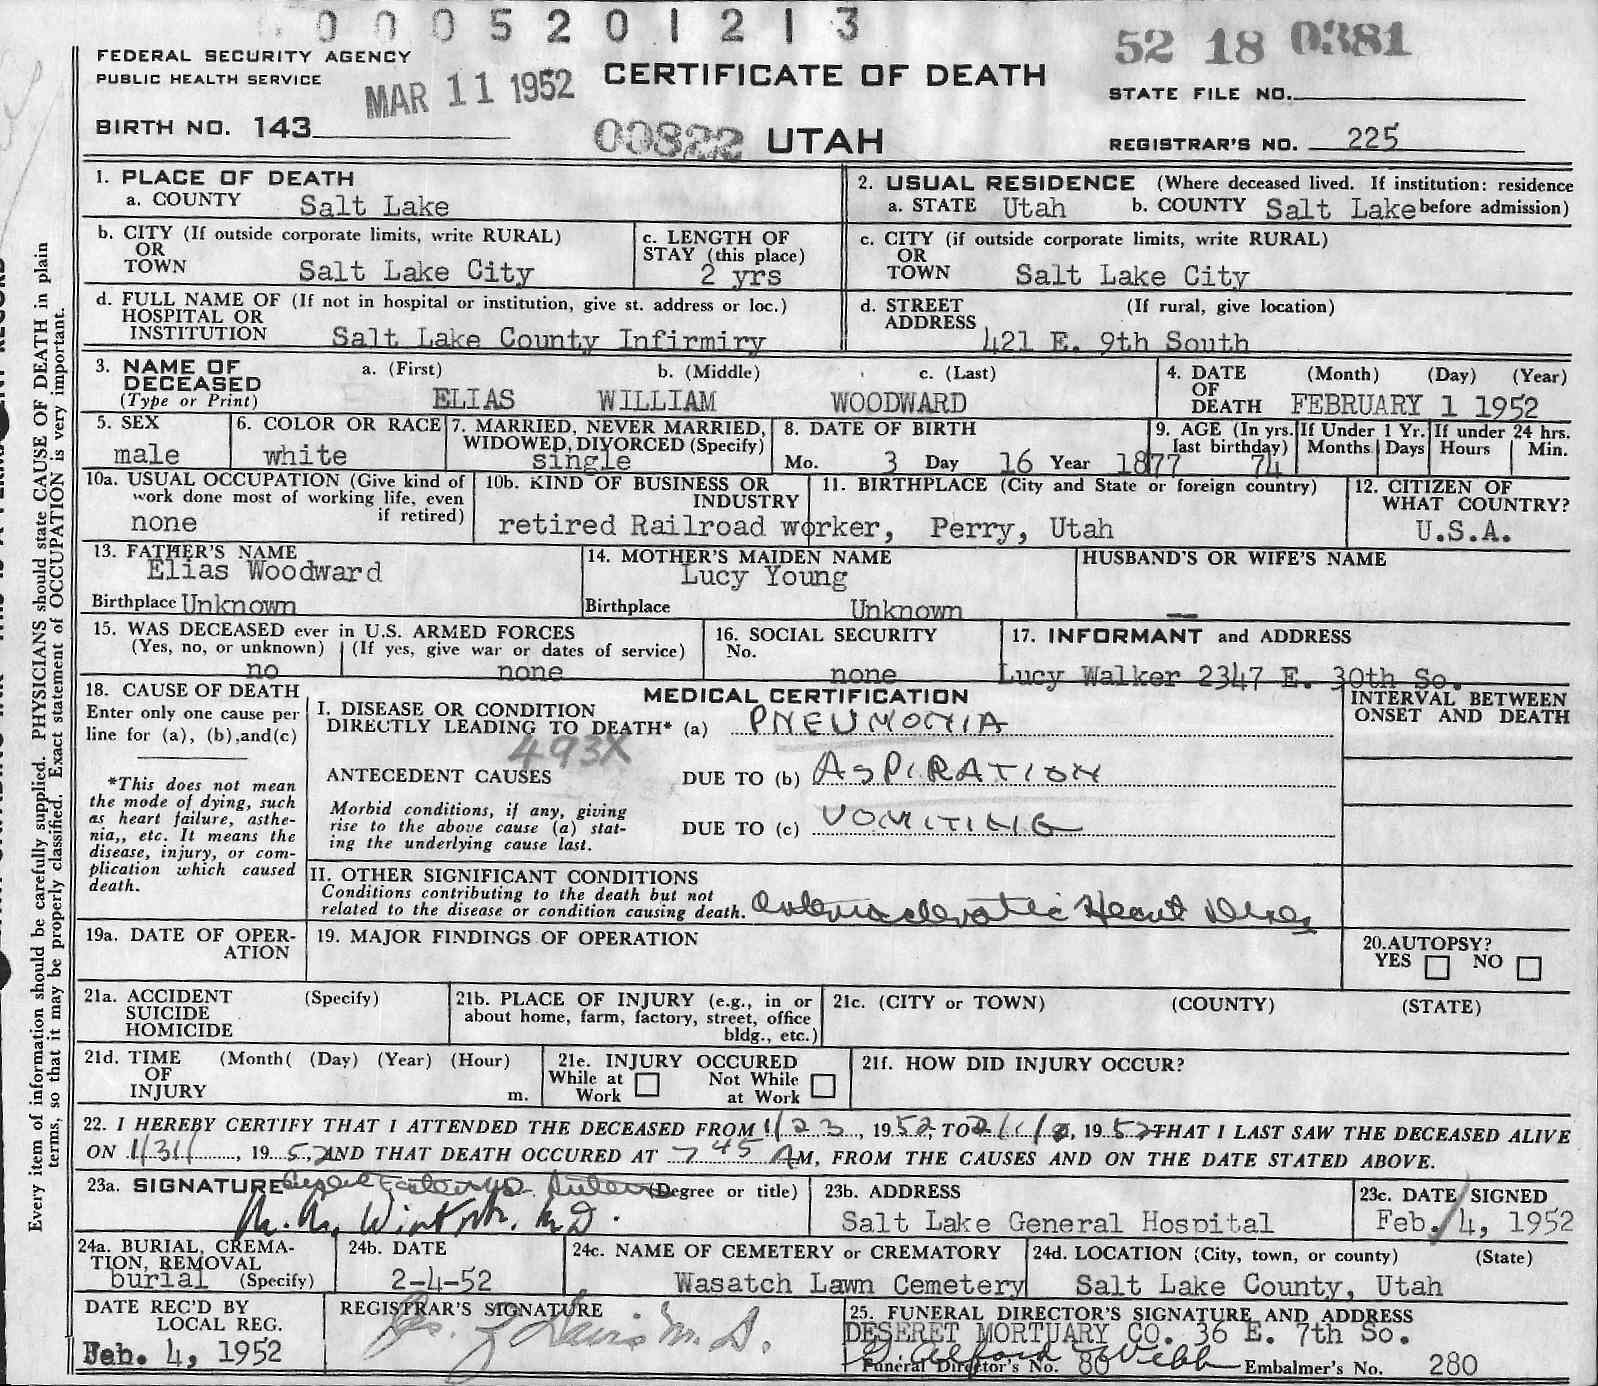 000520 1 2 1 3
FEDERAL SECURITY AGENCY
PUBLIC HEALTH SERVICE
MAR 11 1952
CERTIFICATE OF DEATH
52 18 0381
STATE FILE NO.
BIRTH NO. 143
00822 UTAH
REGISTRAR'S NO. 225
1. PLACE OF DEATH
a. COUNTY Salt Lake
2. USUAL RESIDENCE (Where deceased lived. If institution: residence
a. STATE Utah b. COUNTY Salt Lake before admission)
b. CITY (If outside corporate limits, write RURAL)
OR
TOWN Salt Lake City
c. LENGTH OF
STAY (this place)
2 yrs
c. CITY (if outside corporate limits, write RURAL)
OR
TOWN Salt Lake City
d. FULL NAME OF (If not in hospital or institution, give st. address or loc.)
HOSPITAL OR
INSTITUTION Salt Lake County Infirmiry
d. STREET (If rural, give location)
ADDRESS 421 E. 9th South
3. NAME OF a. (First) b. (Middle) c. (Last)
DECEASED
(Type or Print) ELIAS WILLIAM WOODWARD
4. DATE (Month) (Day) (Year)
OF
DEATH FEBRUARY 1 1952
5. SEX
male
6. COLOR OR RACE
white
7. MARRIED, NEVER MARRIED,
WIDOWED, DIVORCED (Specify)
single
8. DATE OF BIRTH
Mo. 3 Day 16 Year 1877
9. AGE (In yrs.
last birthday)
74
If Under 1 Yr.
Months Days
If under 24 hrs.
Hours Min.
10a. USUAL OCCUPATION (Give kind of
work done most of working life, even
if retired)
none
10b. KIND OF BUSINESS OR
INDUSTRY
retired Railroad worker,
11. BIRTHPLACE (City and State or foreign country)
Perry, Utah
12. CITIZEN OF
WHAT COUNTRY?
U.S.A.
13. FATHER'S NAME
Elias Woodward
Birthplace Unknown
14. MOTHER'S MAIDEN NAME
Lucy Young
Birthplace Unknown
HUSBAND'S OR WIFE'S NAME
—
15. WAS DECEASED ever in U.S. ARMED FORCES
(Yes, no, or unknown) (If yes, give war or dates of service)
no none
16. SOCIAL SECURITY
No.
none
17. INFORMANT and ADDRESS
Lucy Walker 2347 E. 30th So.
18. CAUSE OF DEATH
Enter only one cause per
line for (a), (b),and(c)
*This does not mean
the mode of dying, such
as heart failure, asthe-
nia,, etc. It means the
disease, injury, or com-
plication which caused
death.
MEDICAL CERTIFICATION
I. DISEASE OR CONDITION
DIRECTLY LEADING TO DEATH* (a) PNEUMONIA
493X
ANTECEDENT CAUSES DUE TO (b) ASPIRATION
Morbid conditions, if any, giving
rise to the above cause (a) stat-
ing the underlying cause last.
DUE TO (c) VOMITING
INTERVAL BETWEEN
ONSET AND DEATH
II. OTHER SIGNIFICANT CONDITIONS
Conditions contributing to the death but not
related to the disease or condition causing death. Heart
19a. DATE OF OPER-
ATION
19. MAJOR FINDINGS OF OPERATION
20.AUTOPSY?
YES NO
21a. ACCIDENT (Specify)
SUICIDE
HOMICIDE
21b. PLACE OF INJURY (e.g., in or
about home, farm, factory, street, office
bldg., etc.)
21c. (CITY or TOWN) (COUNTY) (STATE)
21d. TIME (Month( (Day) (Year) (Hour)
OF
INJURY m.
21e. INJURY OCCURED
While at Work Not While at Work
21f. HOW DID INJURY OCCUR?
22. I HEREBY CERTIFY THAT I ATTENDED THE DECEASED FROM 1/23, 1952, TO 2/1/, 1952 THAT I LAST SAW THE DECEASED ALIVE
ON 1/31, 1952 AND THAT DEATH OCCURED AT 7 45 AM, FROM THE CAUSES AND ON THE DATE STATED ABOVE.
23a. SIGNATURE (Degree or title)
M.D.
23b. ADDRESS
Salt Lake General Hospital
23c. DATE SIGNED
Feb. 4, 1952
24a. BURIAL, CREMA-
TION, REMOVAL
burial (Specify)
24b. DATE
2-4-52
24c. NAME OF CEMETERY or CREMATORY
Wasatch Lawn Cemetery
24d. LOCATION (City, town, or county) (State)
Salt Lake County, Utah
DATE REC'D BY
LOCAL REG.
Feb. 4, 1952
REGISTRAR'S SIGNATURE
Davis M.D.
25. FUNERAL DIRECTOR'S SIGNATURE AND ADDRESS
DESERET MORTUARY CO. 36 E. 7th So.
Webb
Funeral Director's No. 80 Embalmer's No. 280
Every item of information should be carefully supplied. PHYSICIANS should state CAUSE OF DEATH in plain
terms, so that it may be properly classified. Exact statement of OCCUPATION is very important.